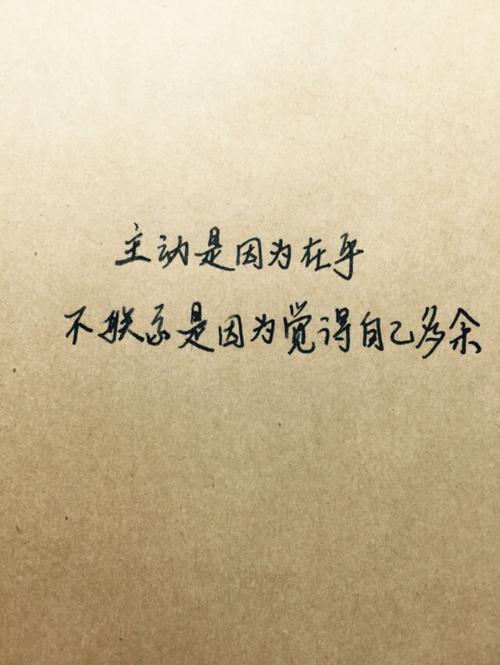 主动是因为在乎
不联系是因为觉得自己多余